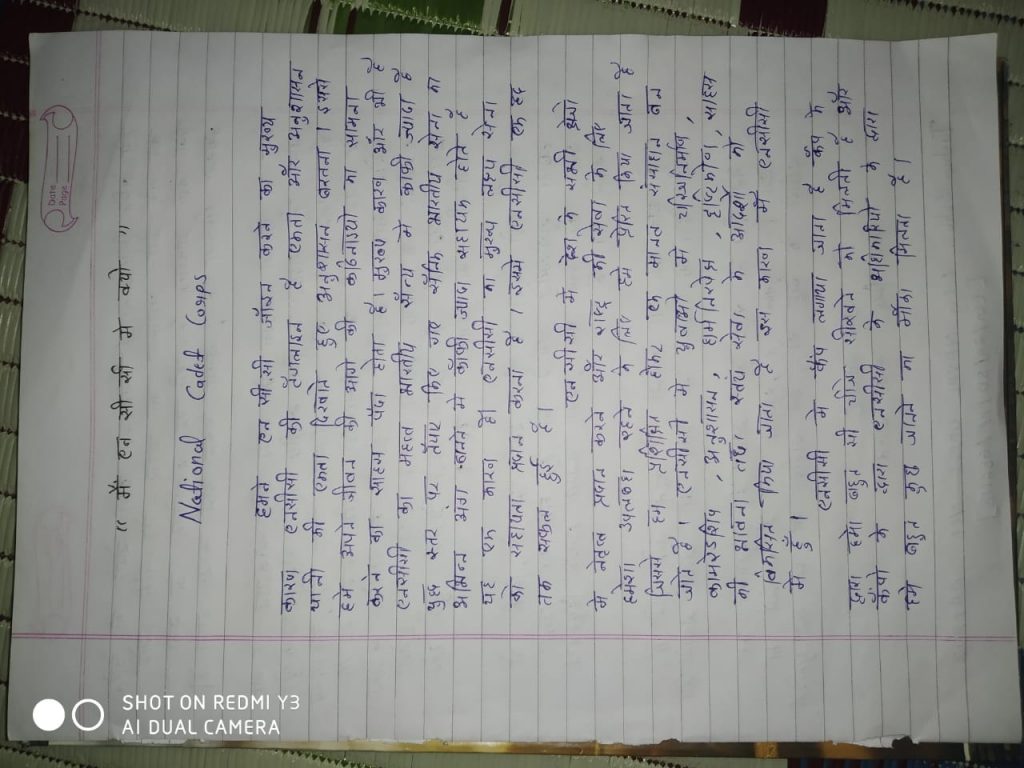 Date
Page
" मैं एन सी सी में क्यों "
National Cadet Corps
हमने एन.सी.सी जॉइन करने का मुख्य
कारण एनसीसी की टैगलाइन है एकता और अनुशासन
यानी की एकता दिखाते हुए अनुशासन बरतना। इससे
हमें अपने जीवन की आगे की कठिनाइयों का सामना
करने का साहस पैदा होता है। मुख्य कारण और भी है
एनसीसी का महत्व भारतीय सेना में काफी ज्यादा है
कुछ स्तर पर तैयार किए गए सैनिक भारतीय सेना का
अभिन्न अंग बनने में काफी ज्यादा सहायक होते हैं
यह एक कारण है। एनसीसी का मुख्य लक्ष्य सेना
को सहायता प्रदान करना है। इसमें एनसीसी एक हद
तक सफल हुई है।
एन.सी.सी में देश के सभी क्षेत्रों
में नेतृत्व प्रदान करने और राष्ट्र की सेवा के लिए
हमेशा उपलब्ध रहने के लिए हमें प्रेरित किया जाता है
जिससे हम संगठित होकर एक मानव संसाधन बन
जाते हैं। एनसीसी में युवाओं में चरित्रनिर्माण,
कामरेडशिप, अनुशासन, धर्मनिरपेक्ष, दृष्टिकोण, साहस
की भावना तथा स्वयं सेवा के आदर्शों को
विकसित किया जाता है इस कारण मैं एनसीसी
में हूँ।
एनसीसी में कैंप लगाया जाता है कैंप में
हमें बहुत सी चीज सीखने को मिलती है और
कैंप के साथ एनसीसी के गतिविधियों के साथ
हमें बहुत कुछ जानने का मौका मिलता है।
SHOT ON REDMI Y3
AI DUAL CAMERA